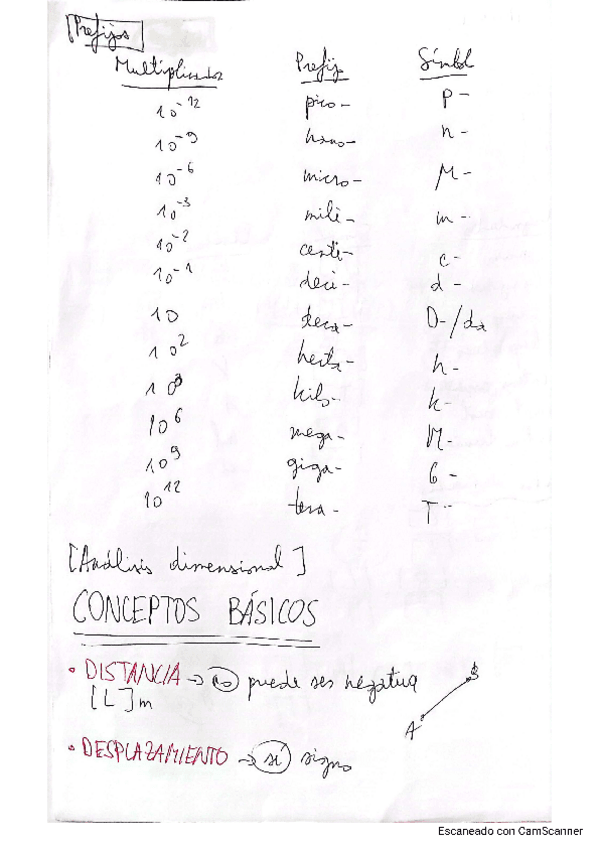 Prefijos
Multiplicador Prefijo Símbol
10⁻¹² pico- p-
10⁻⁹ nano- n-
10⁻⁶ micro- M-
10⁻³ mili- m-
10⁻² centi- c-
10⁻¹ deci- d-
10 deca- D-/da
10² hecta- h-
10³ kilo- k-
10⁶ mega- M-
10⁹ giga- G-
10¹² tera- T-
[Análisis dimensional]
CONCEPTOS BÁSICOS
• DISTANCIA → no puede ser negativa
[L] m
A B
• DESPLAZAMIENTO → sí signo
Escaneado con CamScanner